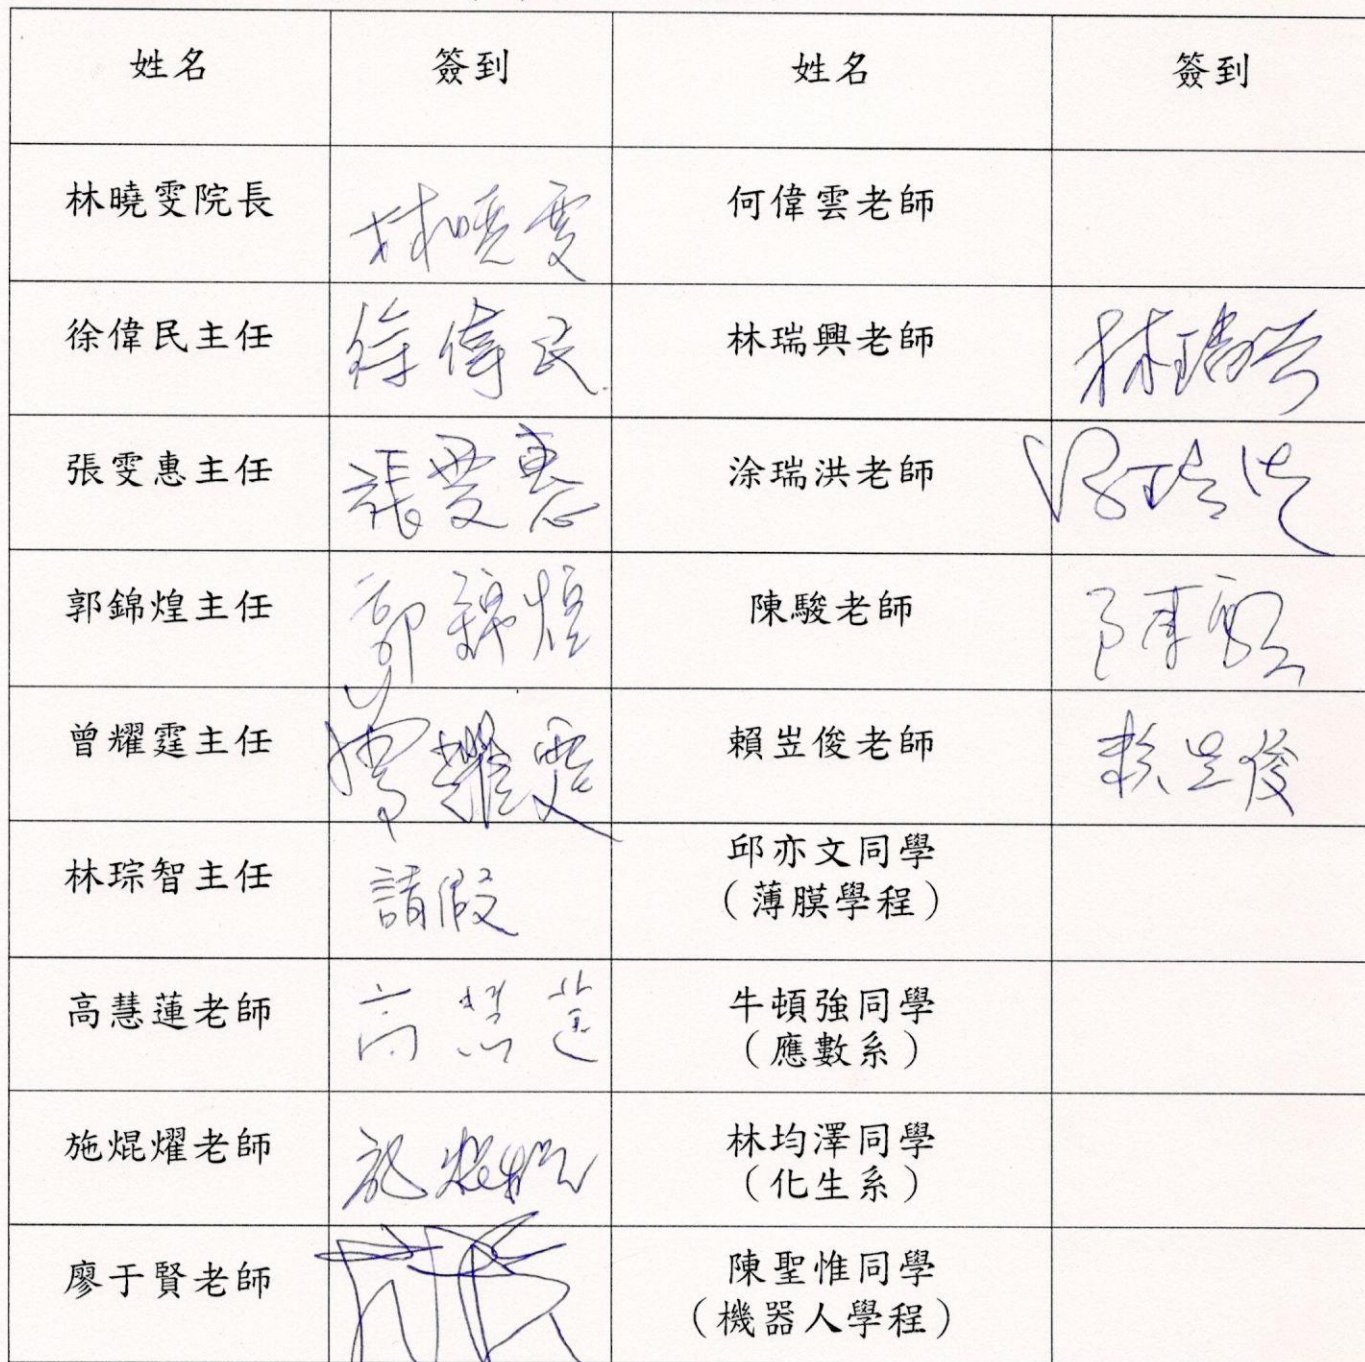 姓名 簽到 姓名 簽到
林曉雯院長 林曉雯 何偉雲老師
徐偉民主任 徐偉民 林瑞興老師 林瑞興
張雯惠主任 張雯惠 涂瑞洪老師 涂瑞洪
郭錦煌主任 郭錦煌 陳駿老師 陳駿
曾耀霆主任 曾耀霆 賴岦俊老師 賴岦俊
林琮智主任 請假 邱亦文同學
（薄膜學程）
高慧蓮老師 高慧蓮 牛頓強同學
（應數系）
施焜燿老師 施焜燿 林均澤同學
（化生系）
廖于賢老師 陳聖惟同學
（機器人學程）